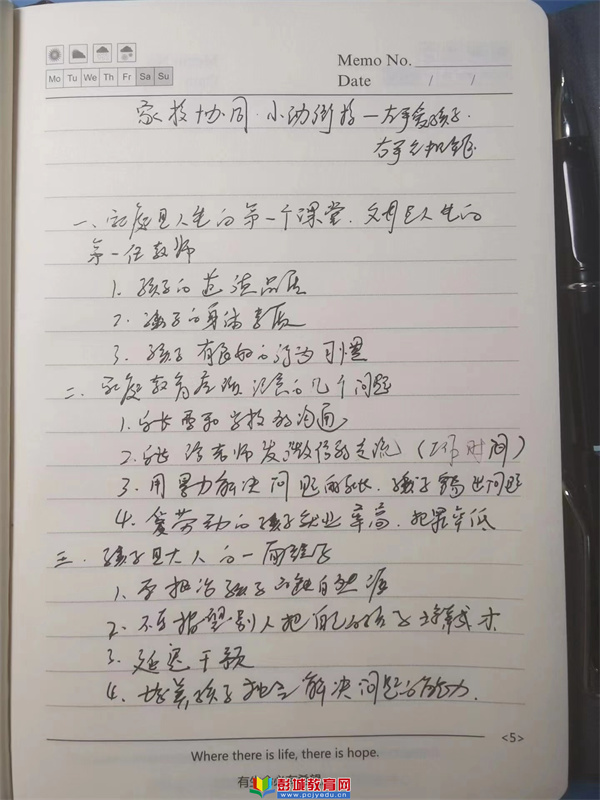 Memo No.
Mo Tu We Th Fr Sa Su
Date / /
家校协同·小幼衔接一右手爱孩子.
右手
一、家庭是人生的第一个课堂、父母是人生的
第一任教师
1. 孩子的道德品质
2. 孩子的身体素质
3. 孩子有良好的行为习惯
二、家庭教育应注意的几个问题
1. 家长要和学校的沟通
2. 家长给老师发微信的交流（工作时间）
3. 用暴力解决问题的家长、孩子 出问题
4. 爱劳动的孩子就业率高、犯罪率低
三、孩子是大人的一面镜子
1. 孩子的
2. 不要指望别人把自己的孩子培养成才
3. 延迟干预
4. 培养孩子独立解决问题的能力.
<5>
Where there is life, there is hope.
有生
彭城教育网
www.pcjyedu.cn